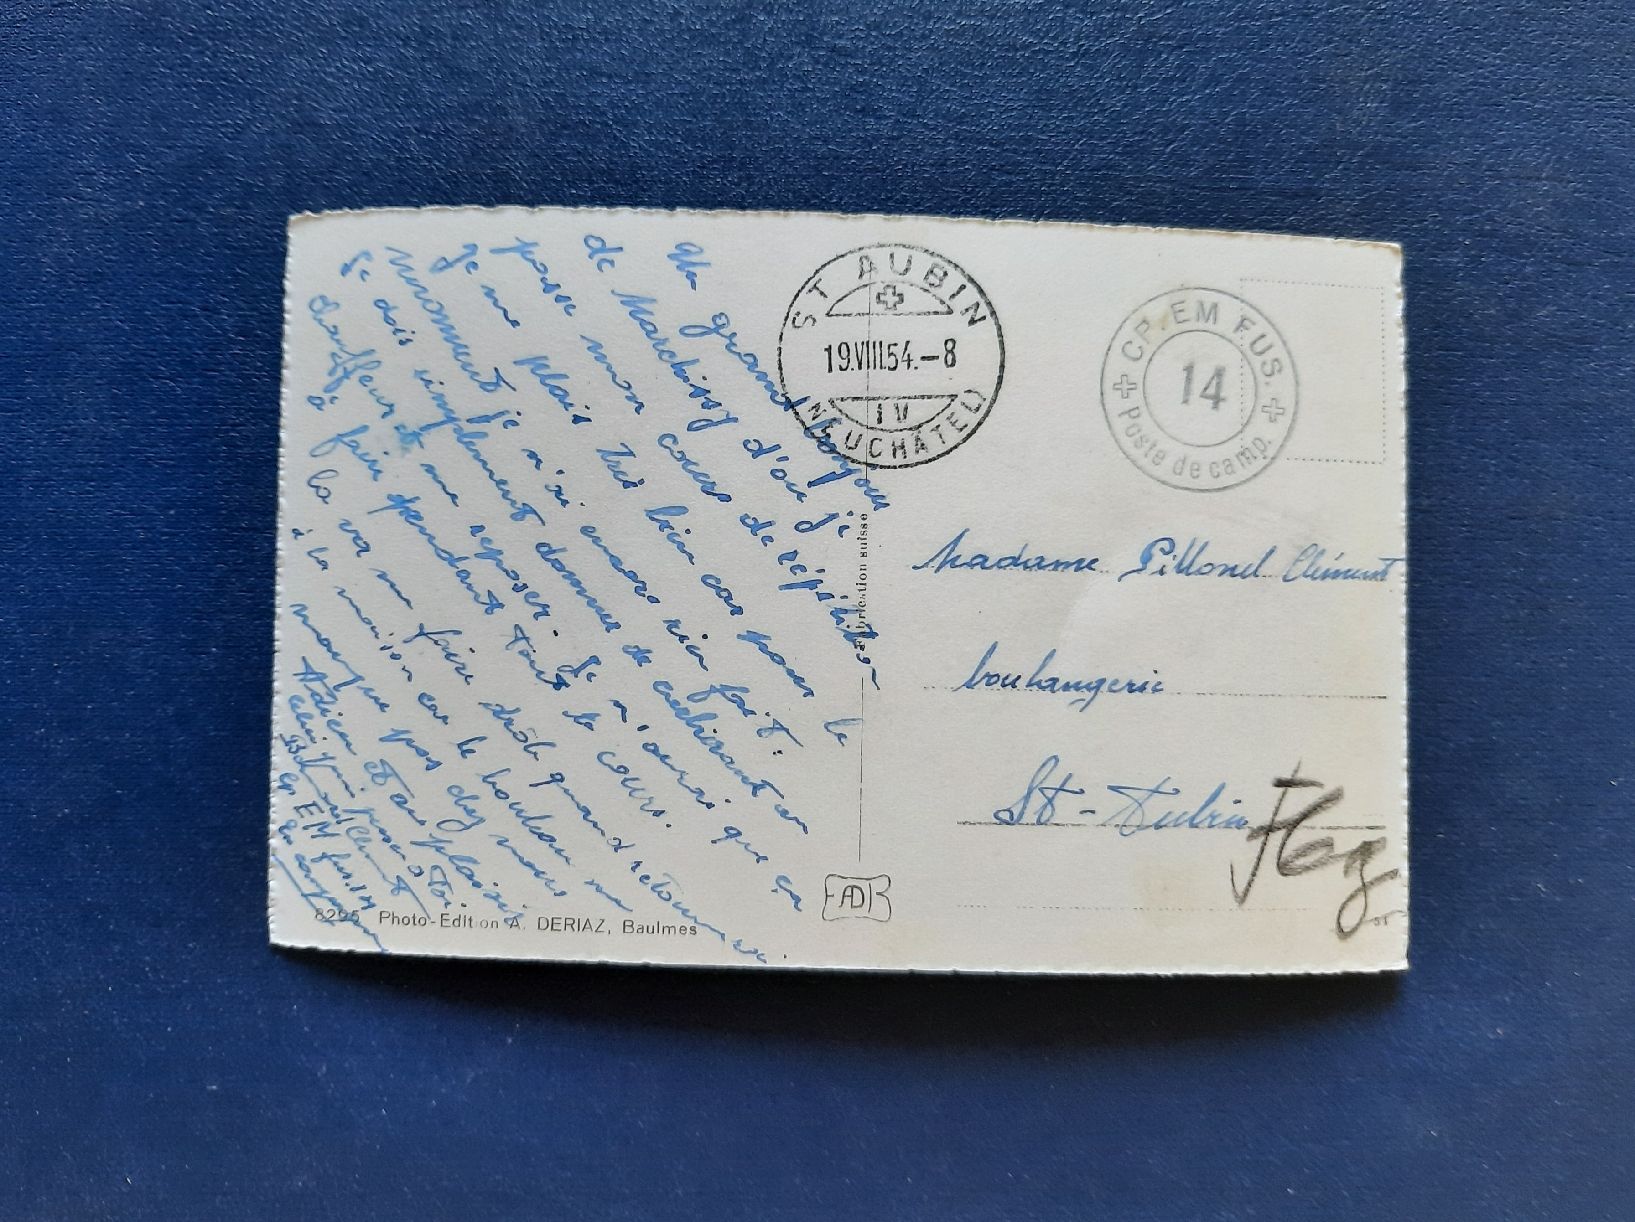 Un grand bonjour
de Marchissy d'ou je
passe mon cours de répétition
je me plais très bien car pour le
moment je n'ai encore rien fait.
Je dois simplement donner de
chauffeur et me reposer. Je n'aurai que ça
à faire pendant tout le cours.
Ça va me faire drôle quand retournerai
à la maison car le boulan me
manque pas chez nous
Adieu et au plaisir
Cp EM fus. 14
en campagne
ST AUBIN
19.VIII.54.-8
IV
(NEUCHÂTEL)
CP. EM FUS.
14
Poste de camp.
Madame Pillonel Clément
boulangerie
St-Aubin
Fabrication suisse
8295 Photo-Edition A. DERIAZ, Baulmes
ADB